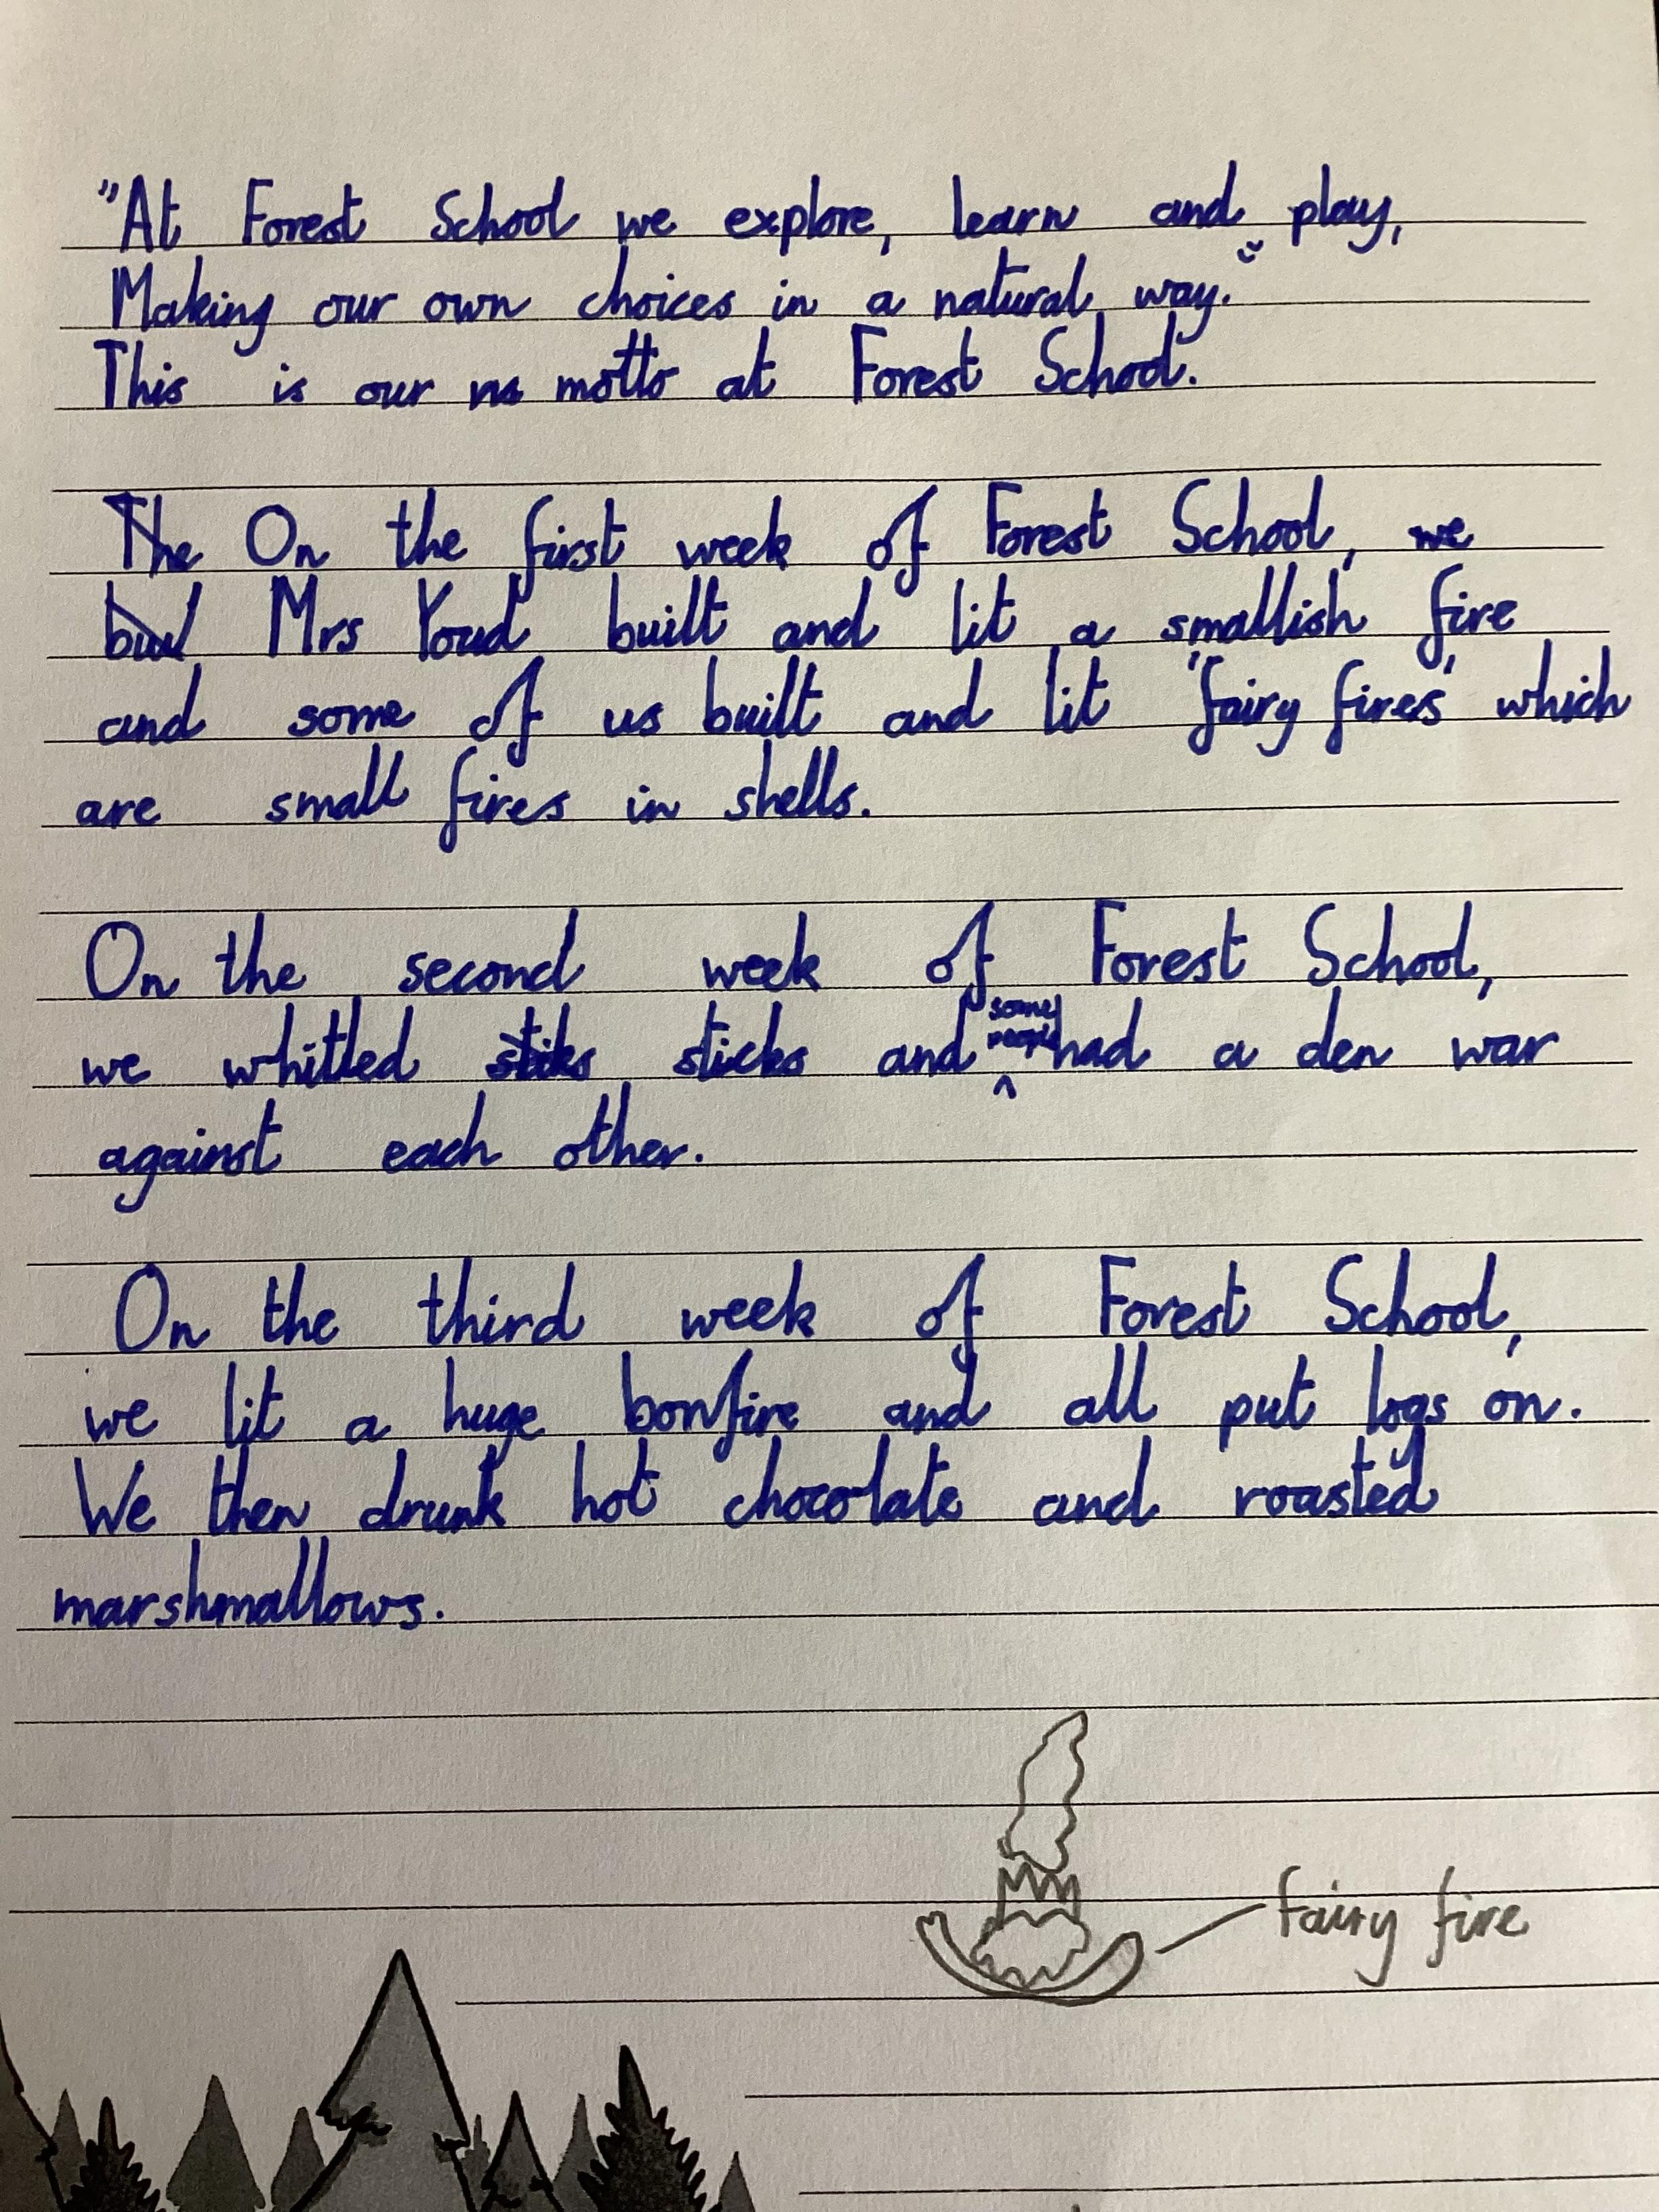 "At Forest School we explore, learn and play,
Making our own choices in a natural way."
This is our motto at Forest School.
The On the first week of Forest School, we
Mrs Youd built and lit a smallish fire
and some of us built and lit 'fairy fires' which
are small fires in shells.
On the second week of Forest School,
we whitled stiks sticks and some people had a den war
against each other.
On the third week of Forest School,
we lit a huge bonfire and all put logs on.
We then drunk hot chocolate and roasted
marshmallows.
fairy fire